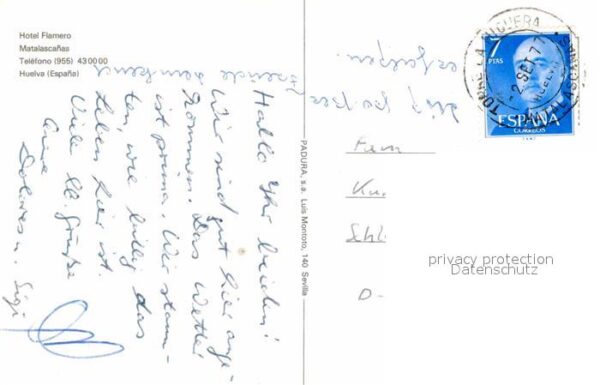 Hotel Flamero
Matalascañas
Teléfono (955) 43 00 00
Huelva (España)
Hallo Ihr beiden!
Wir sind gut hier ange-
kommen. Das Wetter
ist prima. Wir staun-
ten, wie billig das
Leben hier ist.
Viele lb. Grüße
Eure
Dolores u. Sigi
PADURA, s.a. Luis Montoto, 140 Sevilla
7
PTAS
ESPAÑA
CORREOS
TORRE LA HIGUERA
-2 SET 77
HUELVA
MATALASCAÑAS
D-
privacy protection
Datenschutz